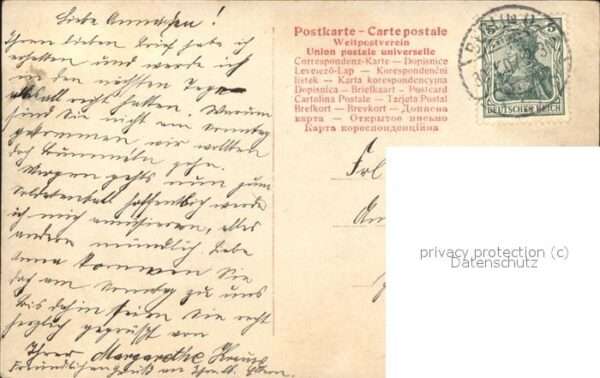 Liebe Annchen!
Ihren lieben Brief habe ich
erhalten und werde ich
in den nächsten Tage
recht halten. Warum
sind Sie nicht am Sonntag
gekommen, wir wollten
doch bummeln gehn.
Morgen gehts nun zum
Soldatenball hoffentlich werde
ich mich amüsieren, alles
andere mündlich. Liebe
Anna kommen Sie
doch am Sonntag zu uns
bis dahin seien Sie recht
herzlich gegrüsst von
Ihrer Margarethe
Freundlichen Gruß an Ihre Eltern.
Postkarte - Carte postale
Weltpostverein
Union postale universelle
Correspondenz-Karte — Dopisnice
Levelező-Lap — Korespondenční
lístek — Karta korespondencyjna
Dopisnica — Briefkaart — Postcard
Cartolina Postale — Tarjeta Postal
Brefkort — Brevkort — Дописна
карта — Открытое письмо
Карта кореспонденційна
5
DEUTSCHES REICH
Frl
An
privacy protection (c)
Datenschutz